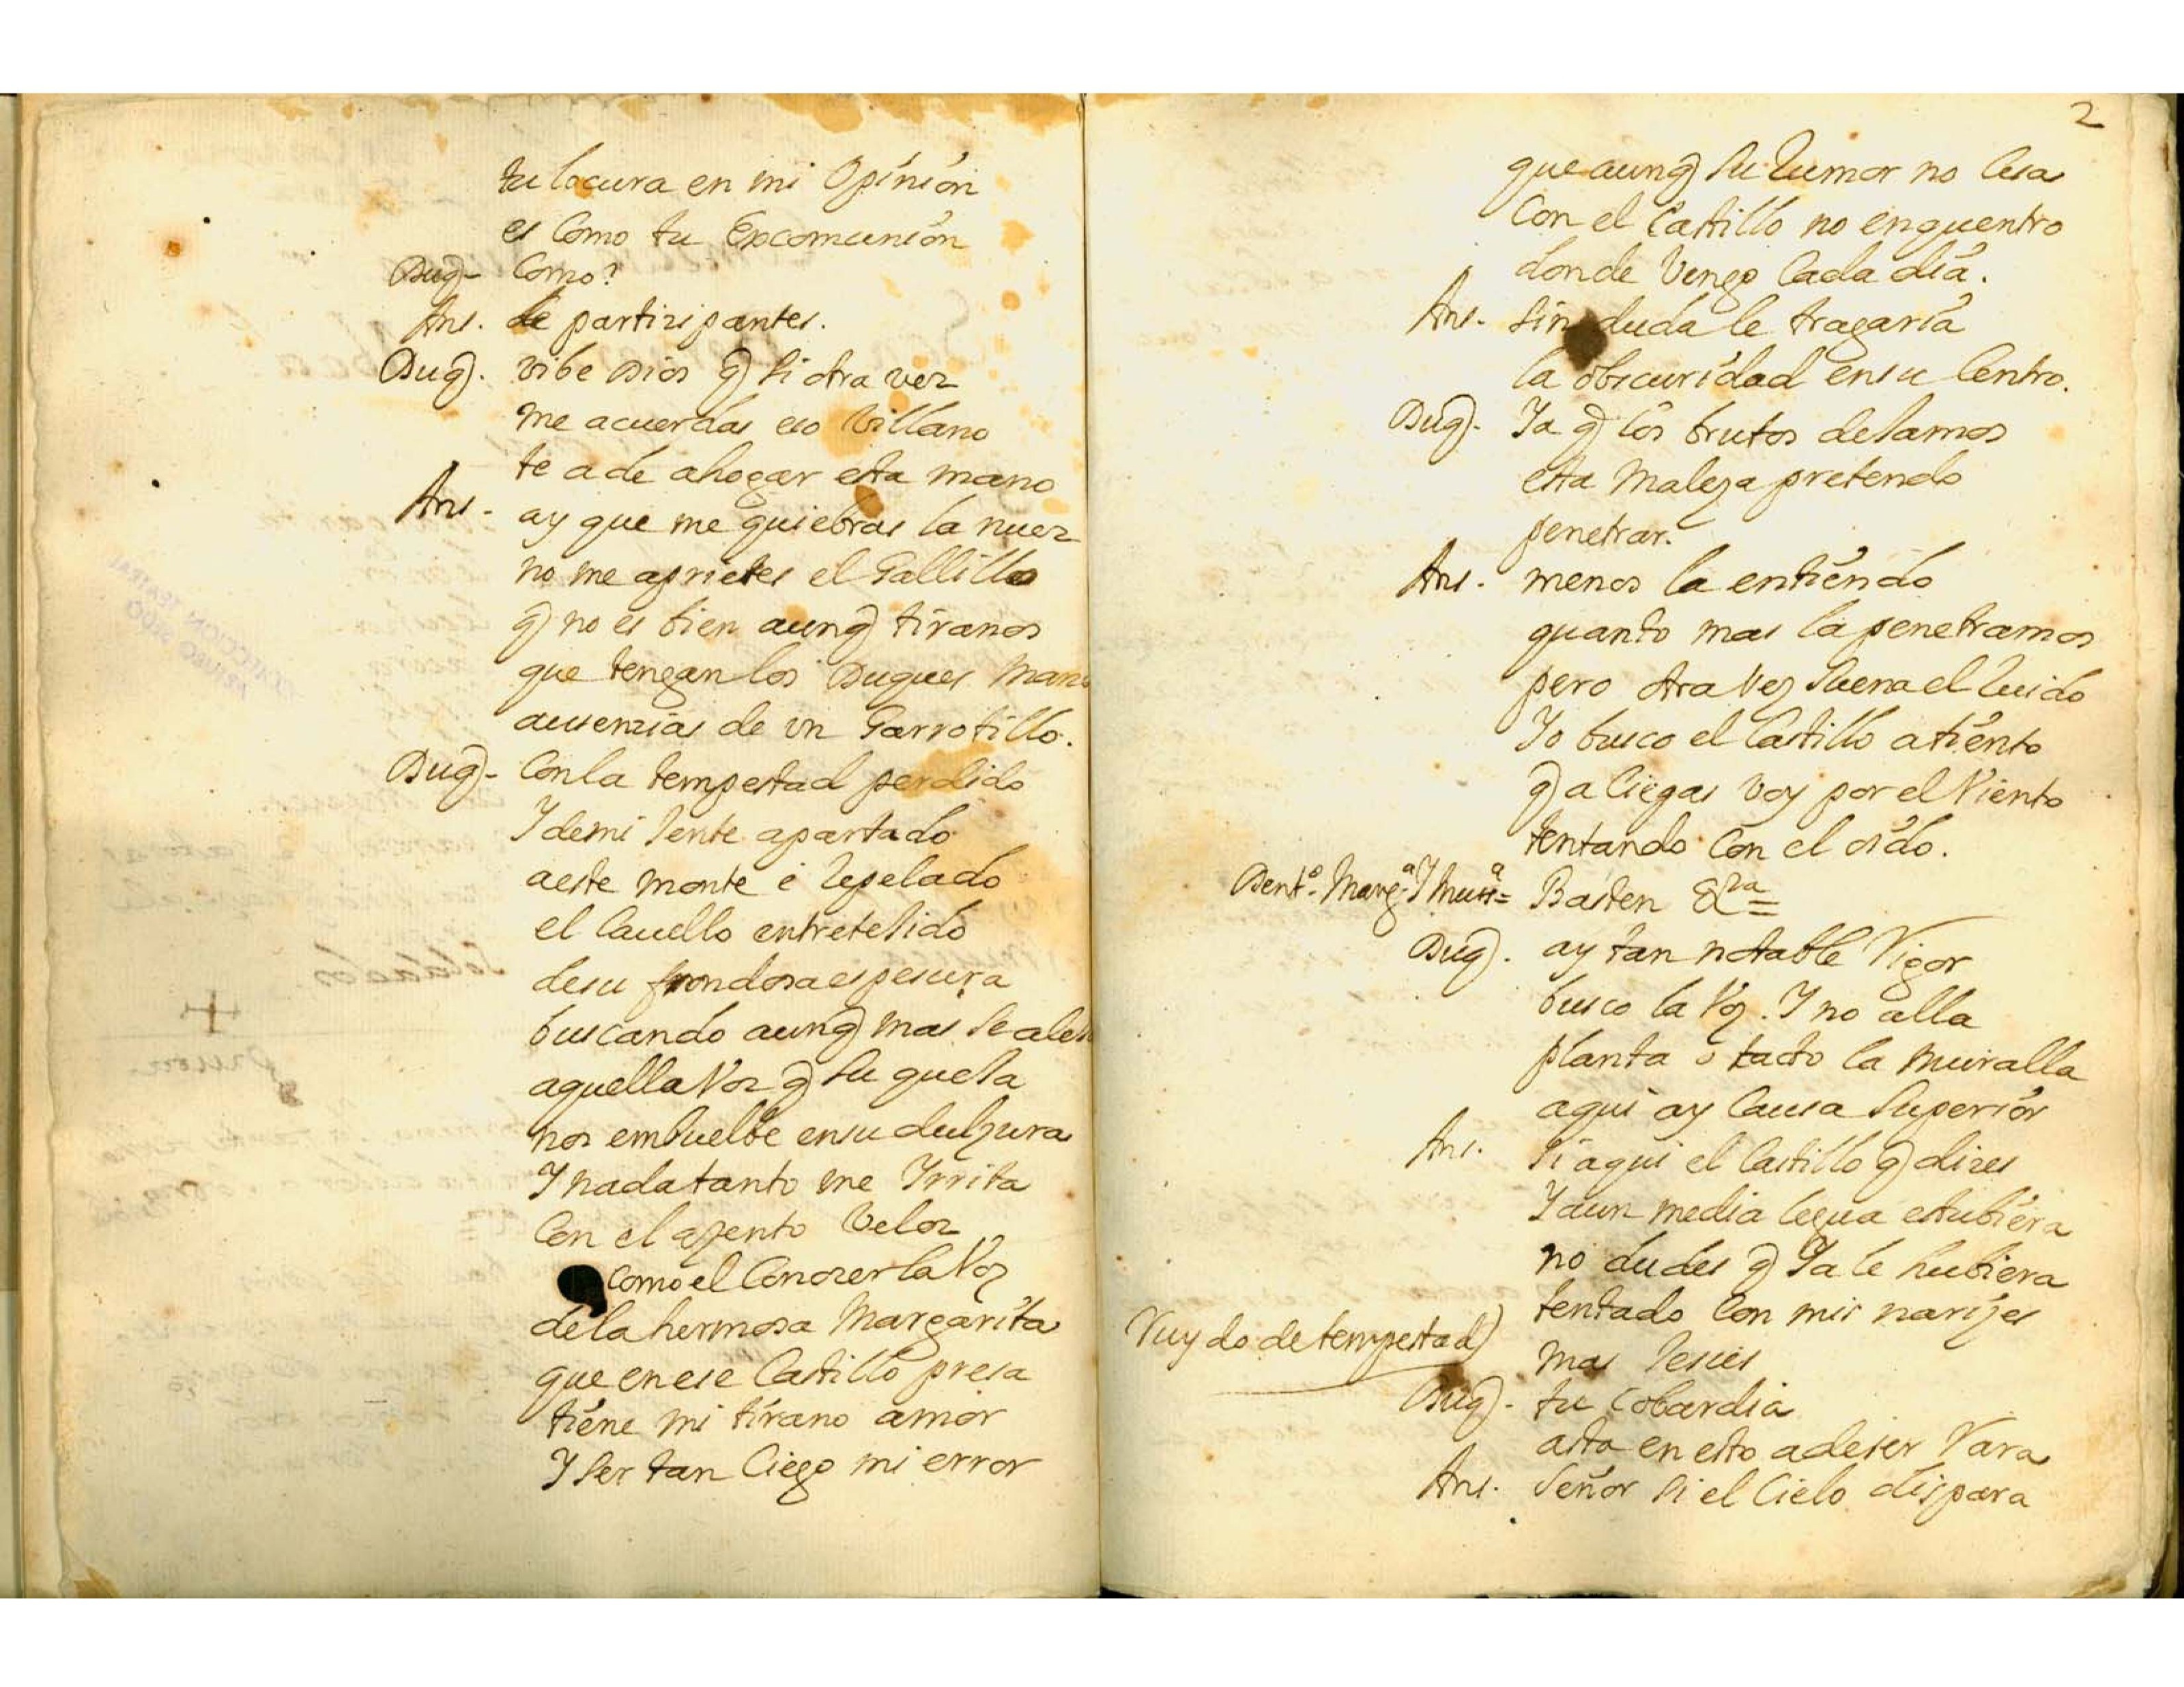 tu locura en mi Opinión
es Como tu Excomunión
Duq- Como?
Ans. de partizipantes.
Duq. vibe Dios q si otra vez
me acuerdas eso Villano
te a de ahogar esta mano
Ans- ay que me quiebras la nuez
no me aprietes el Gallillo
q no es bien aunq tiranos
que tengan los Duques Mano
ausenzias de vn Garrotillo.
Duq- Con la tempestad perdido
I de mi Jente apartado
a este monte é Rejelado
el Cauello entretejido
de su frondosa espesura
buscando aunq mas se aleja
aquella Voz q su queja
nos embuelbe en su dulzura
I nada tanto me Irrita
Con el azento Veloz
como el Conozer la Voz
de la hermosa Margarita
que en ese Castillo presa
tiene mi tirano amor
I ser tan Ciego mi error
2
que aunq su Rumor no Cesa
Con el Castillo no enquentro
donde Vengo Cada dia.
Ans- sin duda le tragaria
la obscuridad en su Centro.
Duq- Ia q los brutos dejamos
esta Maleza pretendo
penetrar.
Ans. menos la entiendo
quanto mas la penetramos
pero otra Vez suena el Ruido
Io busco el Castillo a tiento
q a Ciegas voy por el Viento
tentando Con el oido.
Dentº. Margª I Musª= Basten &ra=
Duq. ay tan notable Rigor
busco la Voz. I no alla
planta o tacto la Muralla
aqui ay Causa superior
Ans. si aqui el Castillo q dizes
I aun media legua estubiera
no dudes q Ia le hubiera
tentado Con mis narizes
Ruydo de tempestad) mas Jesus
Duq- tu Cobardia
asta en esto a de ser Rara
Ans. Señor si el Cielo dispara